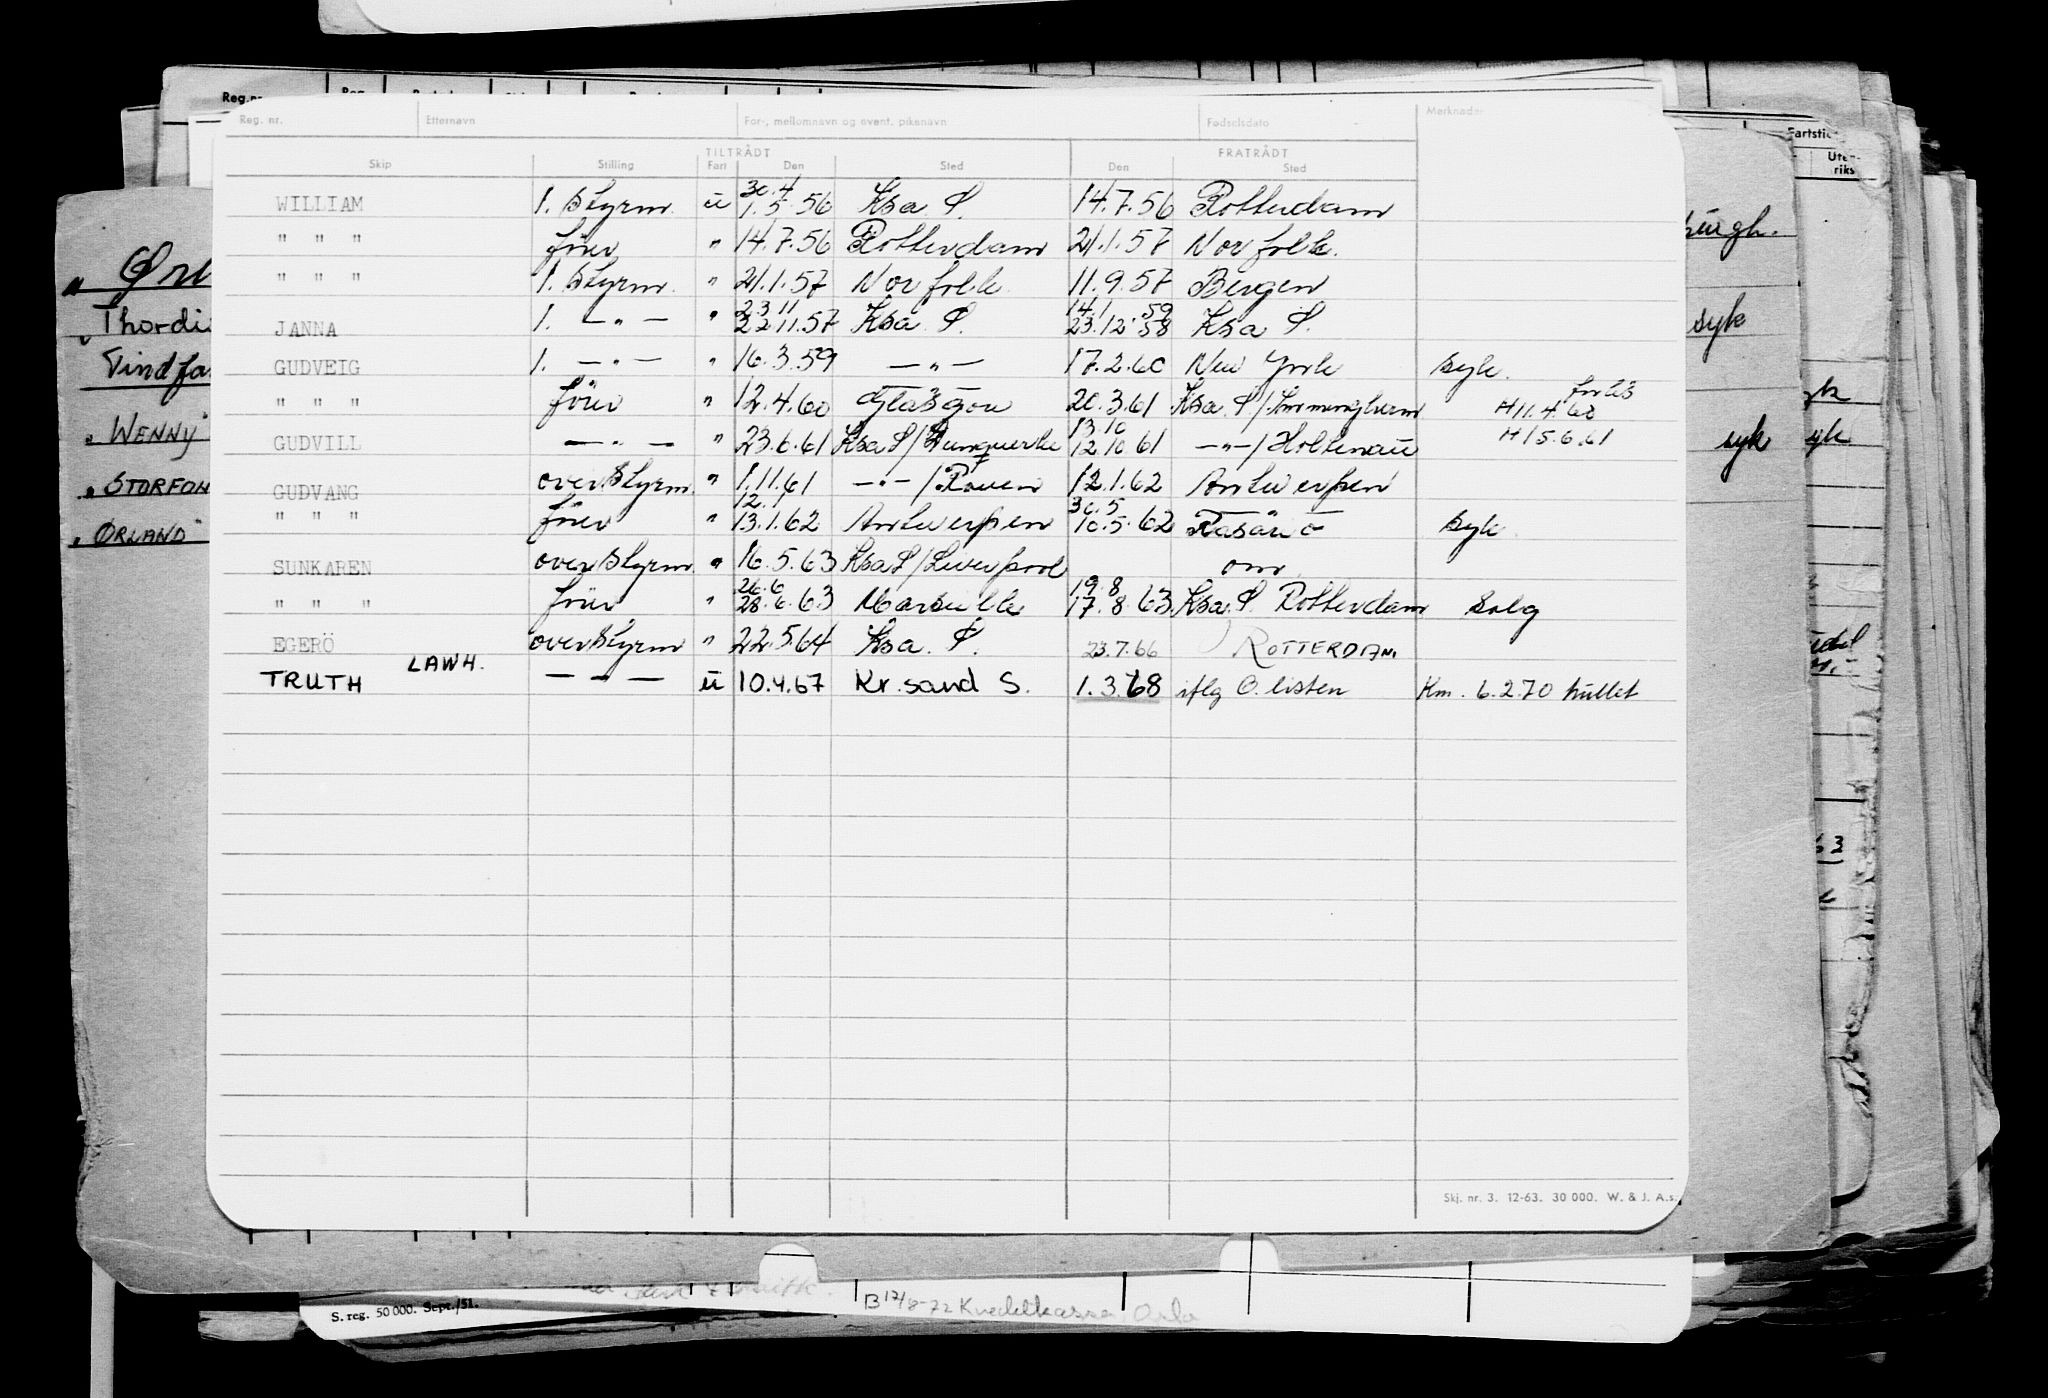 Reg. nr. Etternavn For-, mellomnavn og event. pikenavn Fødselsdato Merknader
TILTRÅDT FRATRÅDT
Skip Stilling Fart Den Sted Den Sted
WILLIAM 1. Styrm. u 30.4 1.5.56 Ksa. S. 14.7.56 Rotterdam
" " " förer " 14.7.56 Rotterdam 21.1.57 Norfolk.
" " " 1. Styrm. " 21.1.57 Norfolk 11.9.57 Bergen
JANNA 1. —"— " 23.11 22.11.57 Ksa S. 14.1.59 23.12.58 Ksa S.
GUDVEIG 1. —"— " 16.3.59 —"— 17.2.60 New York syk.
" " " förer " 12.4.60 Glasgow 20.3.61 Ksa. S/Immingham H11.4.60 forlis
GUDVILL —"— " 23.6.61 Ksa S/Dunquerke 13.10 12.10.61 —"—/Holtenau H15.6.61
GUDVANG overstyrm. " 1.11.61 —"—/Rouen 12.1.62 Antwerpen
" " " förer " 12.1 13.1.62 Antwerpen 30.5 10.5.62 Rosario syk.
SUNKAREN overstyrm. " 16.5.63 Ksa S/Liverpool om
" " " förer " 26.6 28.6.63 Marseille 19.8 17.8.63 Ksa. S. Rotterdam solg
EGERÖ overstyrm " 22.5.64 Ksa. S. 23.7.66 ROTTERDAM.
TRUTH LAWH. —"— u 10.4.67 Kr.sand S. 1.3.68 iflg O. listen Km. 6.2.70 hullet
Skj. nr. 3. 12-63. 30 000. W. & J. A.s.
Reg.nr
Fartstid
Uten-
riks
Thordi
Tindfa
WENNY
STORFON
ØRLAND
burgh.
syk
syk
yk
S. reg. 50 000. Sept./51.
B 17/8-72 Kredittkassa, Oslo